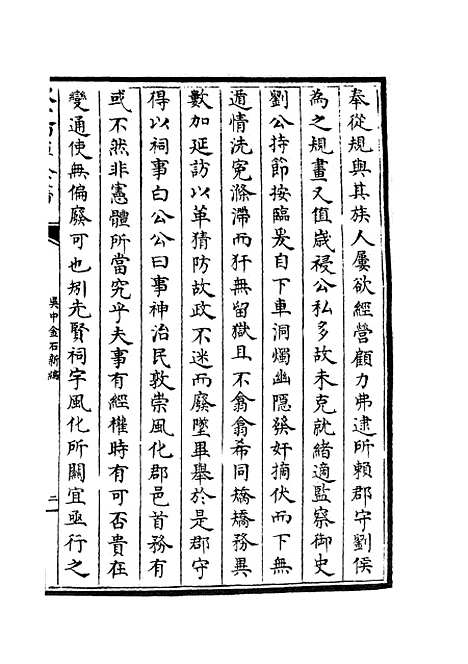 奉從規與其族人屢欲經營顧力弗逮所賴郡守劉侯
為之規畫又值歲祲公私多故未克就緒適監察御史
劉公持節按臨爰自下車洞燭幽隱發奸摘伏而下無
遁情洗冤滌滯而犴無留獄且不翕翕希同矯矯務異
數加延訪以革猜防故政不迷而廢墜畢舉於是郡守
得以祠事白公公曰事神治民敦崇風化郡邑首務有
或不然非憲體所當究乎夫事有經權時有可否貴在
變通使無偏廢可也矧先賢祠宇風化所關宜亟行之
吳中金石新編
二